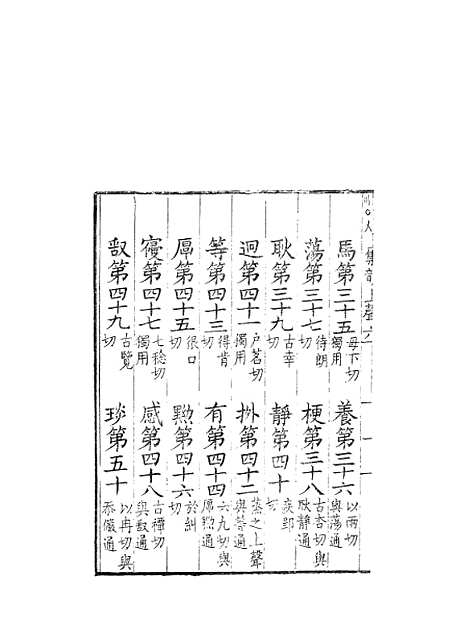 集韻上聲
馬第三十五 母下切獨用 養第三十六 以兩切與蕩通
蕩第三十七 待朗切 梗第三十八 古杏切與耿靜通
耿第三十九 古幸切 靜第四十 疾郢切
迥第四十一 户茗切獨用 拯第四十二 蒸之上聲與等通
等第四十三 得肯切 有第四十四 云九切與厚黝通
㫗第四十五 很口切 黝第四十六 於糾切
寑第四十七 七稔切獨用 感第四十八 古禫切與敢通
敢第四十九 古覽切 琰第五十 以冉切與忝儼通